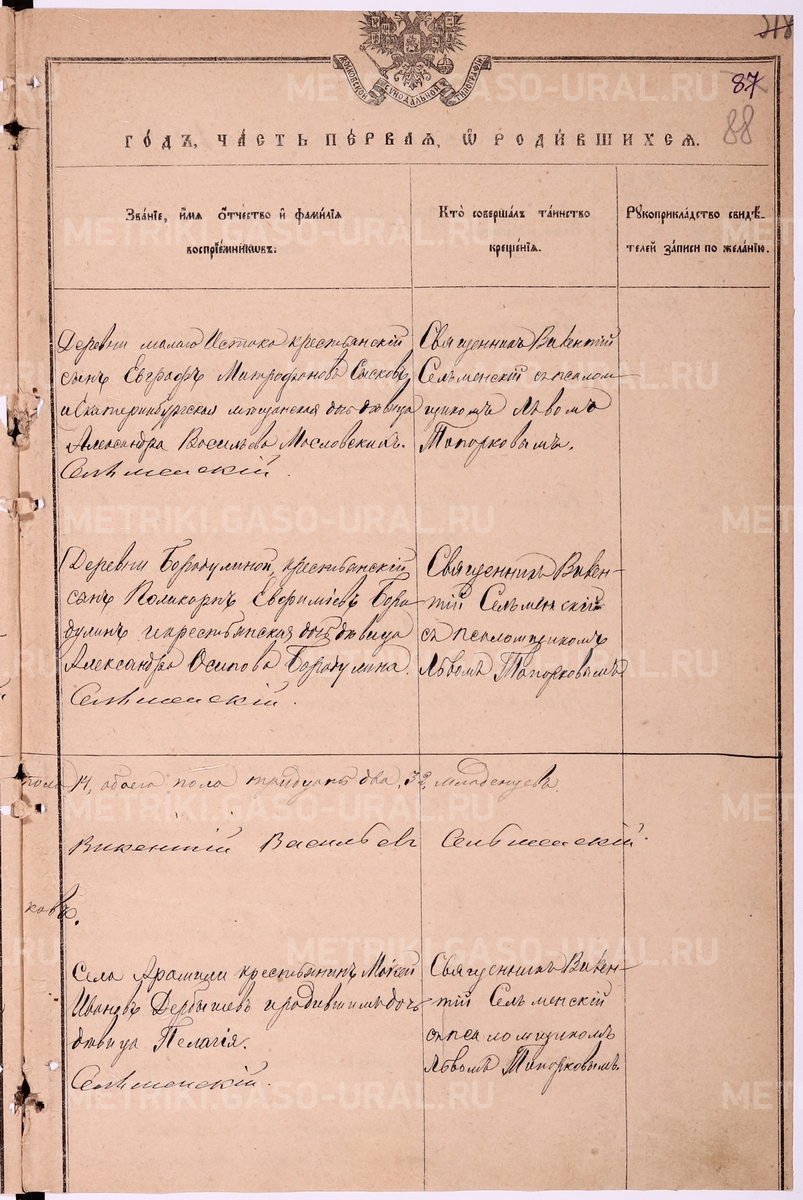 318
87
88
МОСКОВСКОЙ СѴНОДАЛЬНОЙ ТИПОГРАФІИ
ГОДЪ, ЧАСТЬ ПЕРВАЯ, Ѡ РОДИВШИХСЯ.
Званіе, имя отчество и фамилія воспріемниковъ.
Кто совершалъ таинство крещенія.
Рукоприкладство свидѣтелей записи по желанію.
Деревни малаго Истока крестьянскій
сынъ Евграфъ Митрофановъ Сысковъ,
и Екатеринбургская мѣщанская дочь дѣвица
Александра Васильева Масловскихъ.
Селѣменскій.
Священникъ Викентій
Сельменскій съ псалом-
щикомъ Львомъ
Топорковымъ.
Деревни Бородулиной, крестьянскій
сынъ Поликарпъ Евфиміевъ Боро-
дулинъ и крестьянская дочь дѣвица
Александра Осипова Бородулина.
Селѣменскій.
Священникъ Викен-
тій Сельменскій
съ псаломщикомъ
Львомъ Топорковымъ
пола 14, обоего пола тридцать два, 32, младенцевъ
Викентій Васильевъ Сельменскій.
ковъ.
Села Арамили крестьянинъ Мокей
Ивановъ Дербышевъ и родившимъ дочь
дѣвица Пелагія.
Селѣменскій.
Священникъ Викен-
тій Сельменскій
съ псаломщикомъ
Львомъ Топорковымъ
METRIKI.GASO-URAL.RU